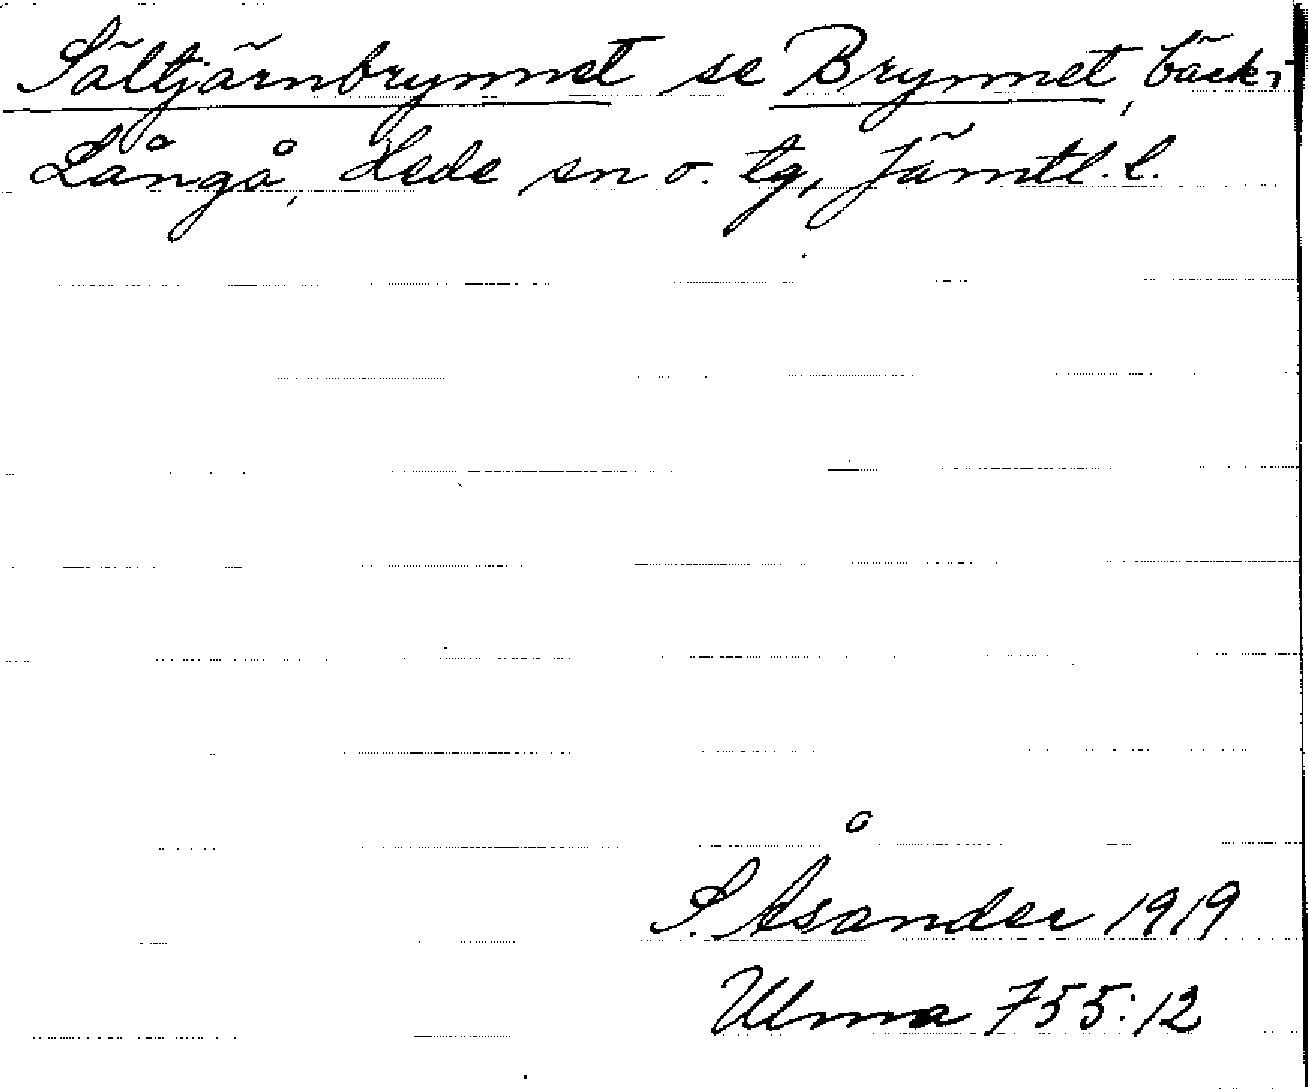 Sältjärnbrynnet se Brynnet, bäck,
Långå, Hede sn o. tg, Jämtl. l.
S. Åsander 1919
Ulma 755:12